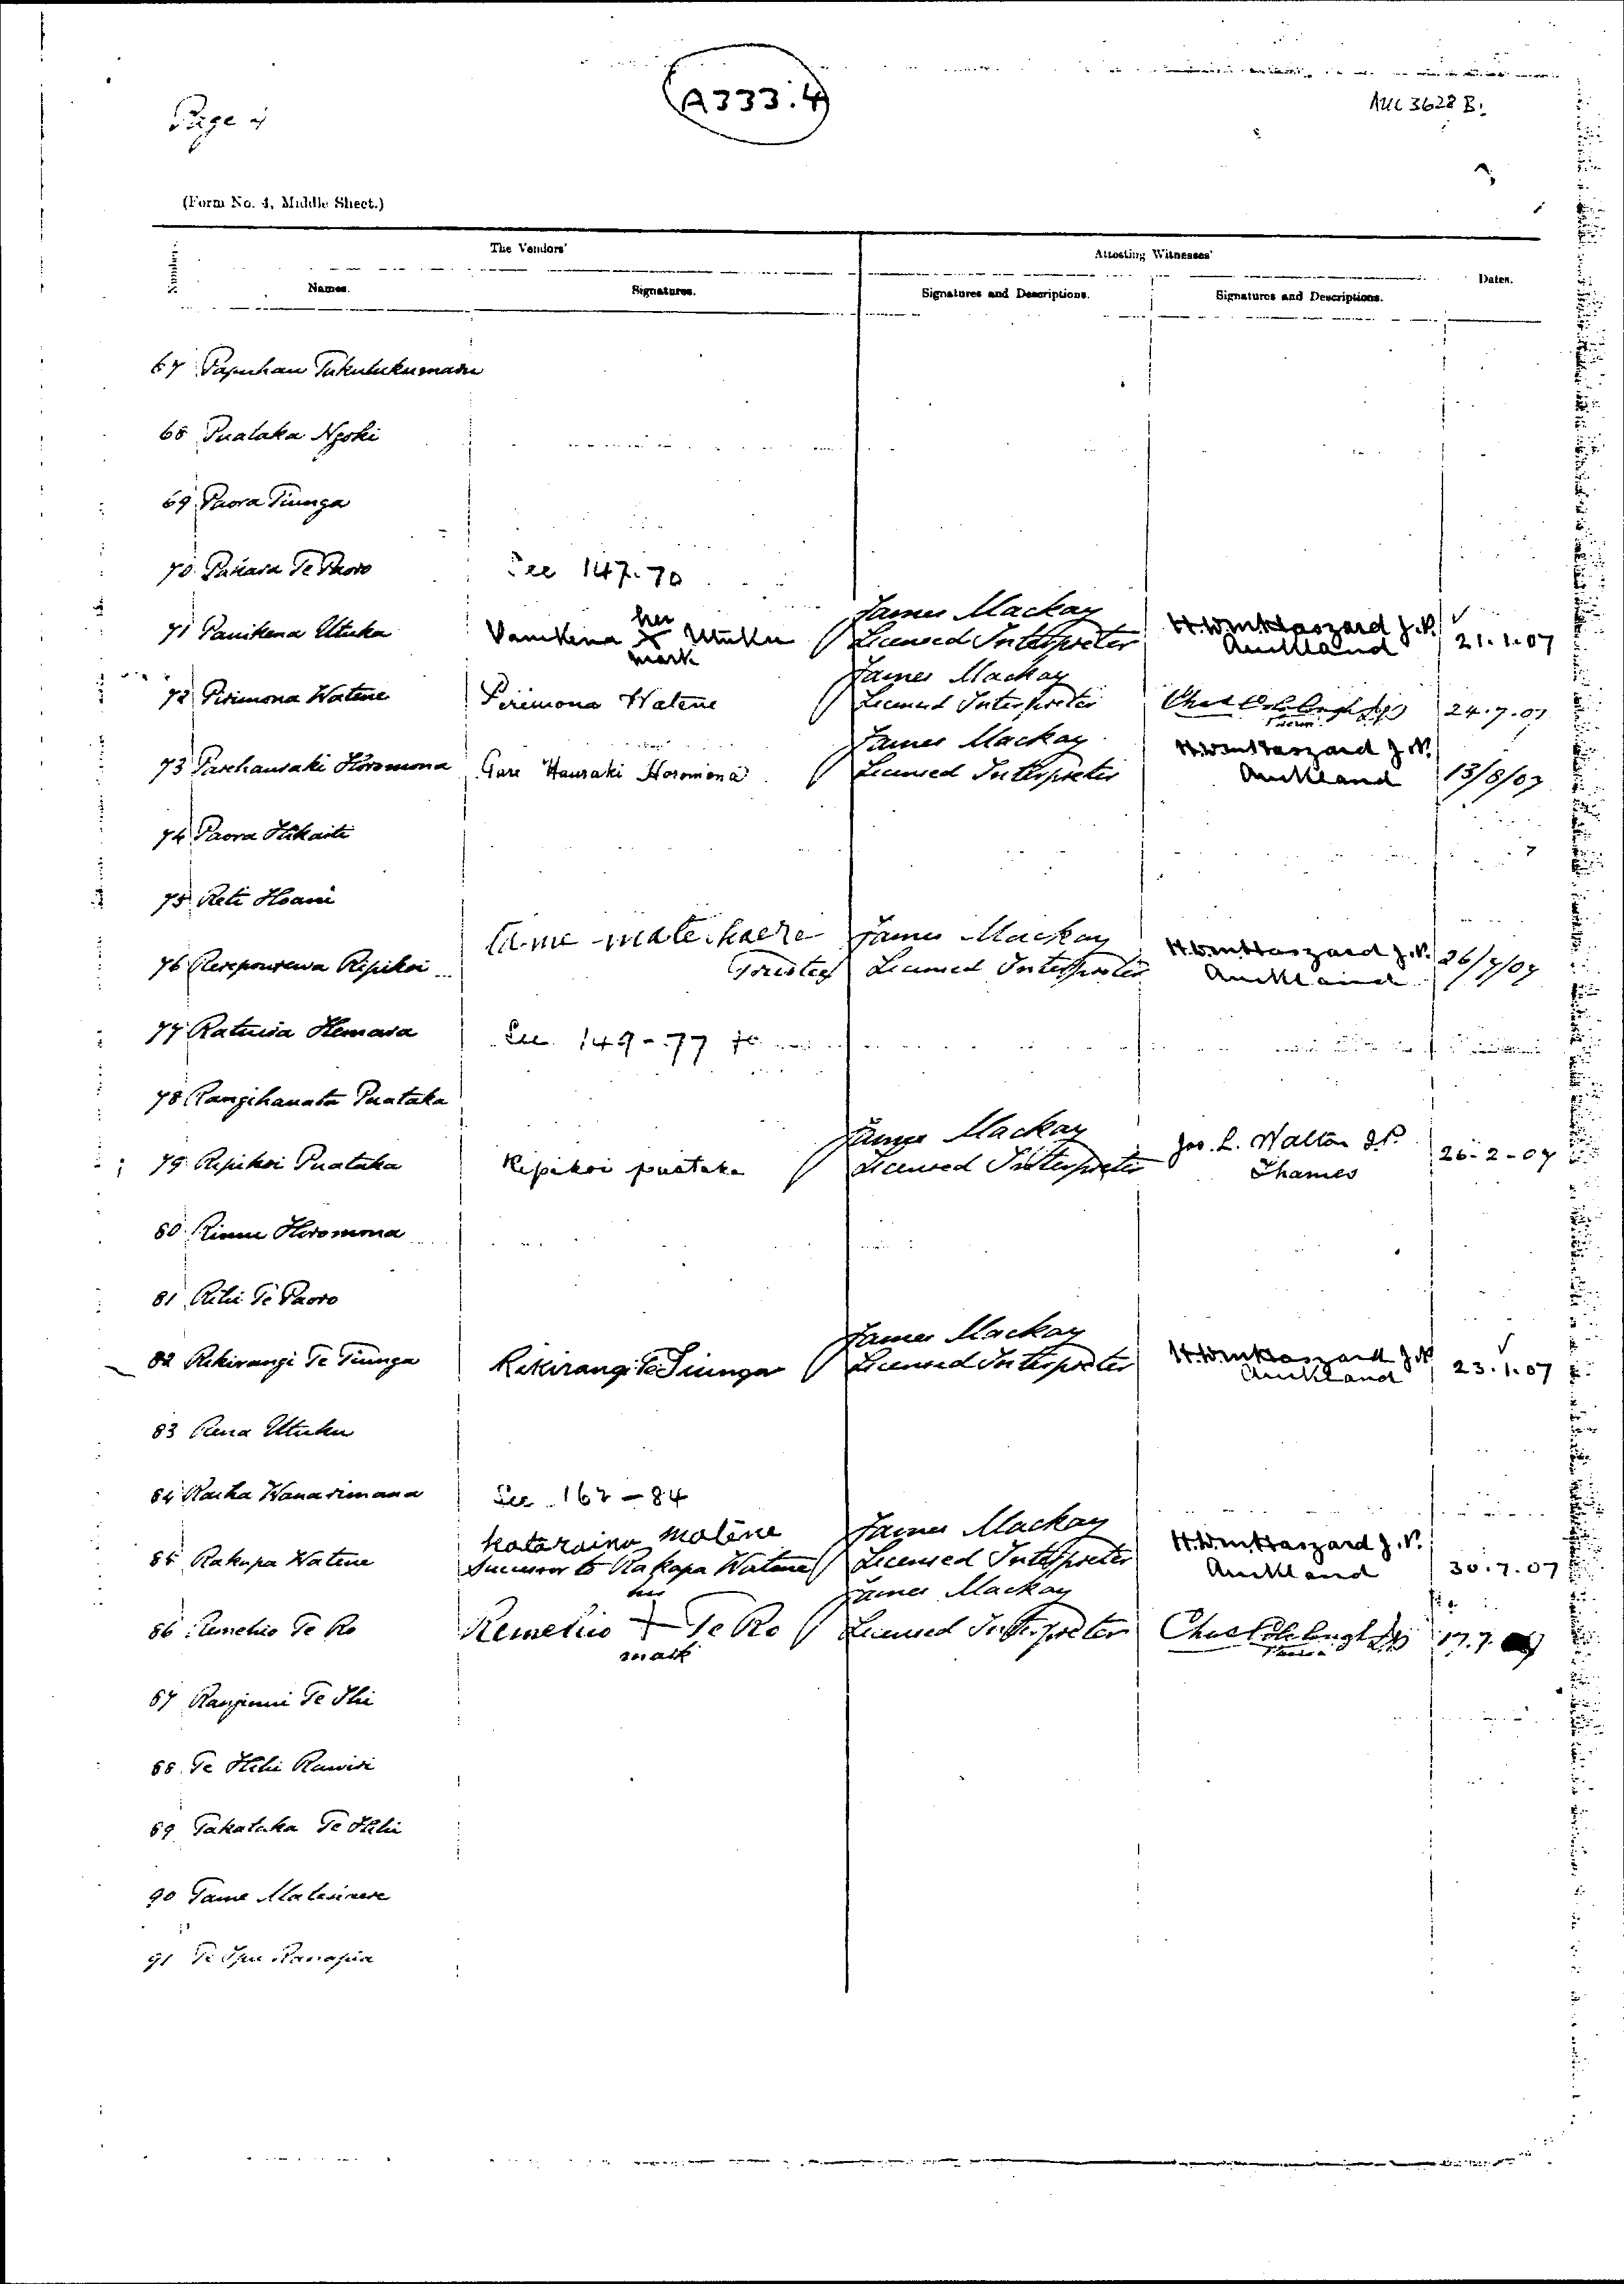 Page 4
A333.4
AUC 3628 B.
(Form No. 4, Middle Sheet.)
The Vendors'
Attesting Witnesses'
Names. Signatures. Signatures and Descriptions. Signatures and Descriptions. Dates.
67
68 Puataka Ngoki
69 Paora Tiunga
70 Te Paoro See 147.70
her James Mackay H. Wm Haszard J.P.
71 Panikena Utuku Panikena X Utuku Licensed Interpreter Auckland 21.1.07
mark
James Mackay
72 Pirimona Watene Pirimona Watene Licensed Interpreter 24.7.07
James Mackay H. Wm Haszard J.P.
73 Parehauraki Horomona Pare Hauraki Horomona Licensed Interpreter Auckland 13/8/07
74 Paora Hikaiti
75 Reti Hoani
James Mackay H. Wm Haszard J.P.
76 Ripikoi Trustee Licensed Interpreter Auckland 26/7/07
77 Hemara See 149-77
78 Puataka
James Mackay Jas. L. Walton J.P.
79 Ripikoi Puataka Ripikoi puataka Licensed Interpreter Thames 26-2-07
80 Horomona
81 Te Paoro
James Mackay H. Wm Haszard J.P.
82 Rikirangi Te Tiunga Rikirangi Te Tiunga Licensed Interpreter Auckland 23.1.07
83 Rena Utuku
84 See 162-84
Kataraina Matene James Mackay H. Wm Haszard J.P.
85 Rakapa Watene Successor to Rakapa Watene Licensed Interpreter Auckland 30.7.07
his James Mackay
86 Remehio Te Ro Remehio + Te Ro Licensed Interpreter 17.7.
mark
87 Te Ihi
88 Te Hihi Rawiri
89 Takataka Te Hihi
90 Tame
91 Te Ipu Ranapia